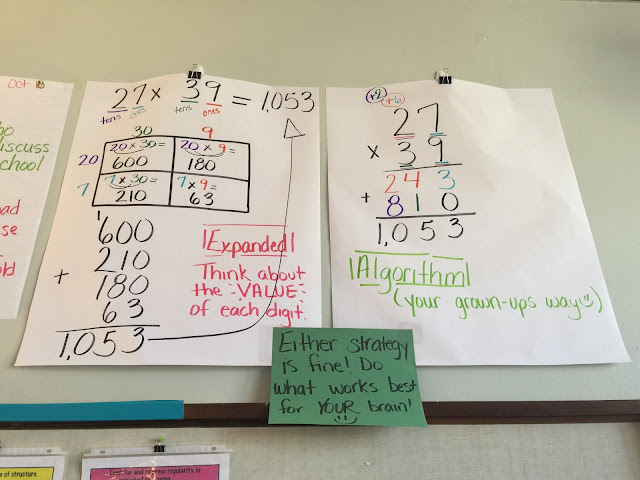 Oct 18
discuss
school
27 × 39 = 1,053
tens ones tens ones
30 9
20 20 × 30 = 20 × 9 =
600 180
7 7 × 30 = 7 × 9 =
210 63
1
600
210
+ 180
63
1,053
Expanded
Think about
the VALUE
of each digit.
+2 +6
27
× 39
243
+ 810
1,053
Algorithm
(your grown-ups way)
Either strategy
is fine! Do
what works best
for YOUR brain!
e of structure.
Look for and express regularity in